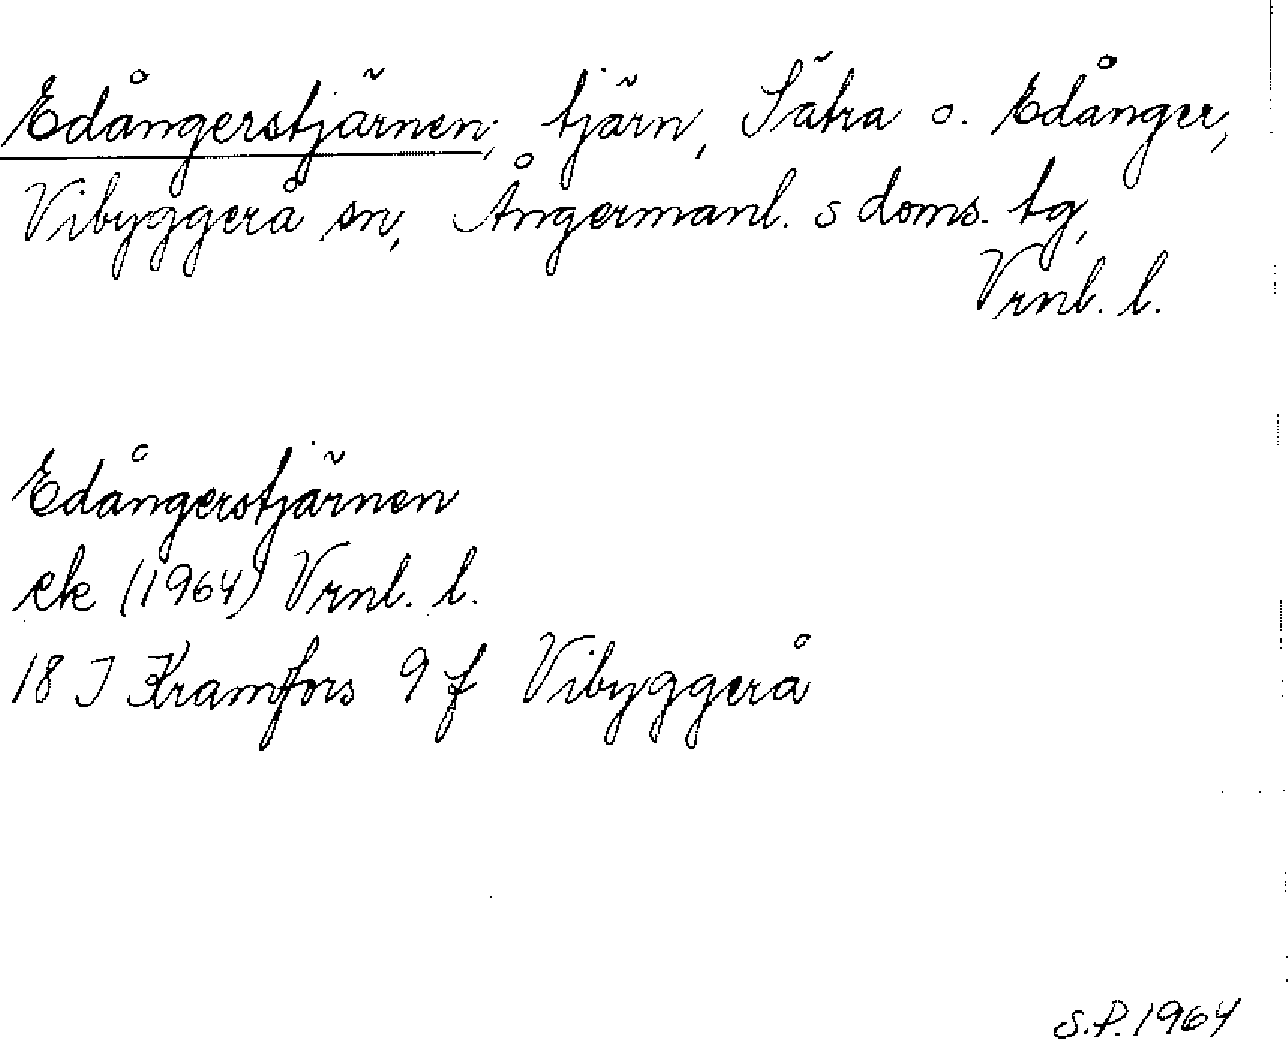 Edångerstjärnen, tjärn, Sätra o. Edånger,
Vibyggerå sn, Ångermanl. s doms. tg,
Vrnl. l.
Edångerstjärnen
ek (1964) Vrnl. l.
18 J Kramfors 9 f Vibyggerå
S.P. 1964